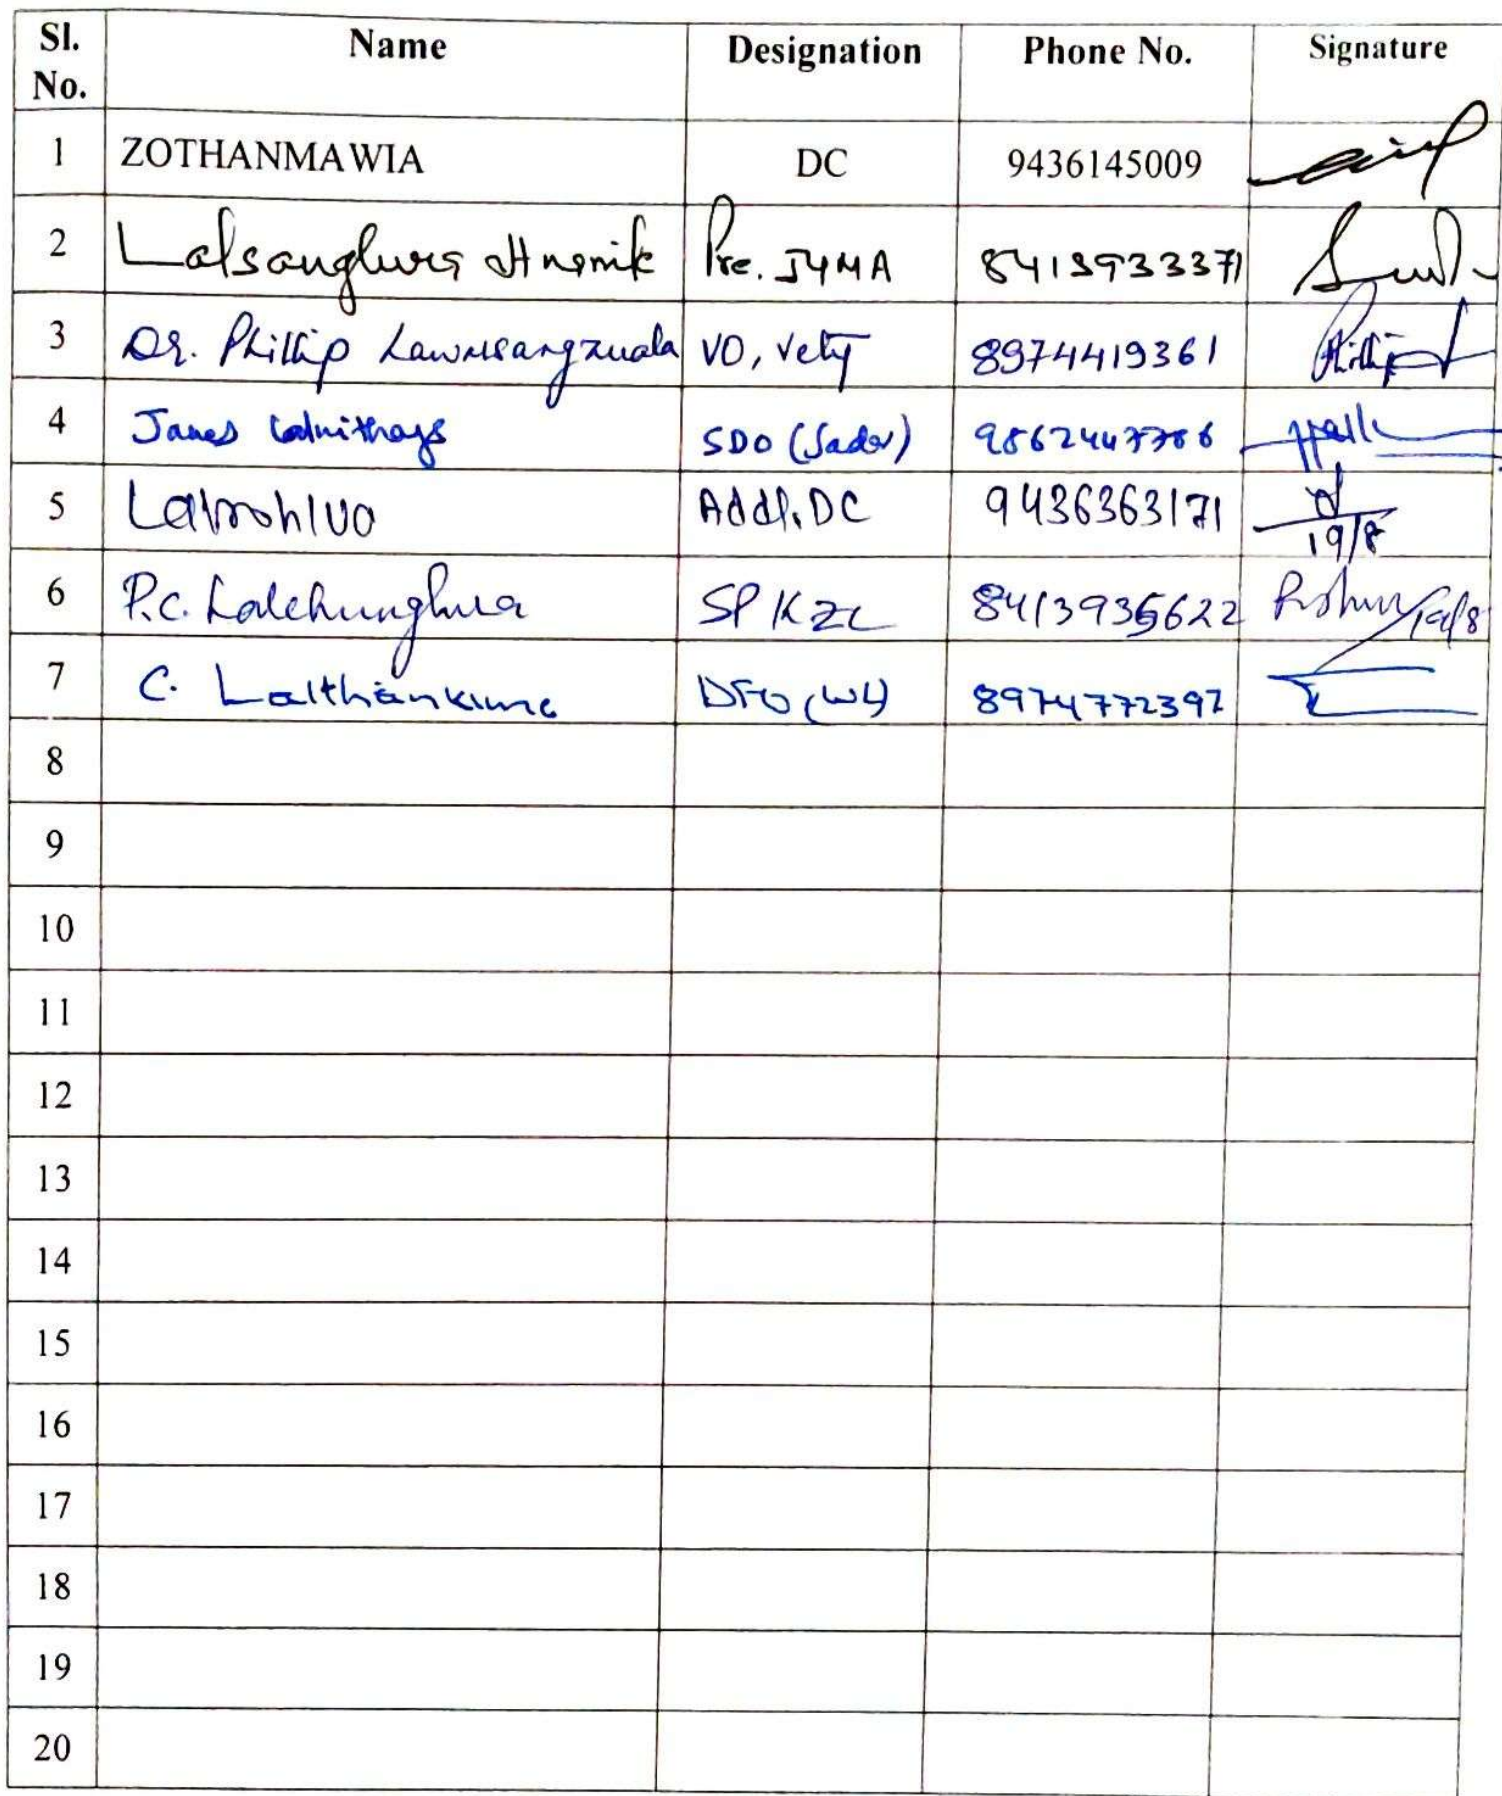 Sl. No. Name Designation Phone No. Signature
1 ZOTHANMAWIA DC 9436145009
2 Lalsanglura Hnamik Pre. JYMA 8413933371
3 Dr. Phillip Lawmsangzuala VO, Vety 8974419361 Phillip
4 James SDO (Sadar) 9862447786
5 Lalrohlua Addl. DC 9436363171 19/8
6 P.C. Lalchunghnua SP KZL 8413935622 19/8
7 C. Lalthankima DFO (WL) 8974772392
8
9
10
11
12
13
14
15
16
17
18
19
20